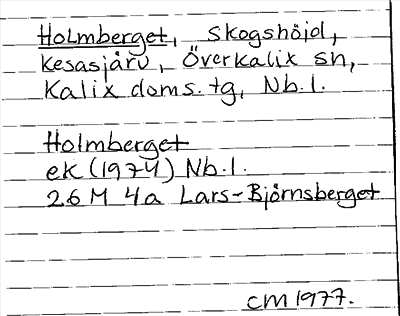 Holmberget, skogshöjd,
Kesasjärv, Överkalix sn,
Kalix doms. tg, Nb. l.
Holmberget
ek (1974) Nb. l.
26 M 4a Lars-Björnsberget
CM 1977.